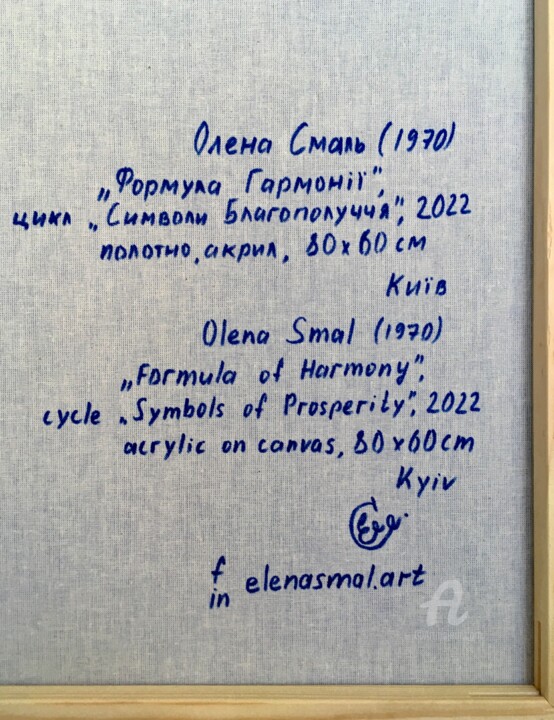 Олена Смаль (1970)
„Формула Гармонії”,
цикл „Символи Благополуччя”, 2022
полотно, акрил, 80x60 см
Київ
Olena Smal (1970)
„Formula of Harmony”,
cycle „Symbols of Prosperity”, 2022
acrylic on canvas, 80x60 cm
Kyiv
f
in elenasmal.art
A